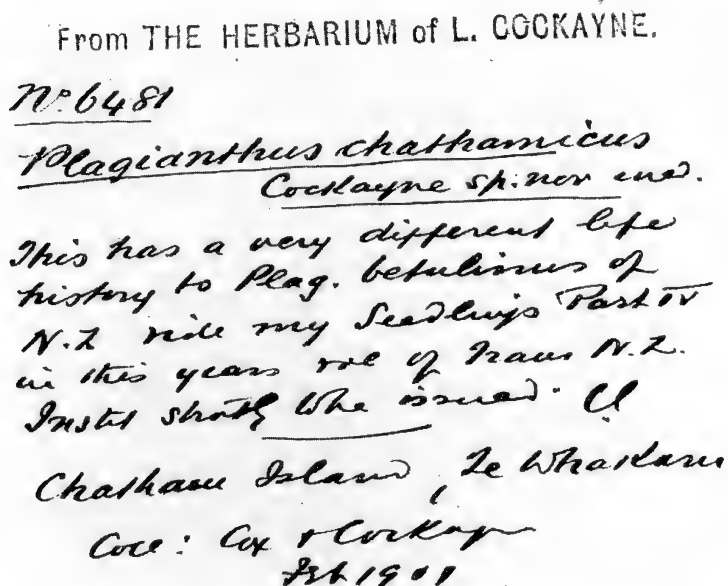 From THE HERBARIUM of L. COCKAYNE.
No. 6481
Plagianthus chathamicus
Cockayne sp. nov ined.
This has a very different life
history to Plag. betulinus of
N.Z vide my Seedlings Part IV
in this years vol of Trans N.Z.
Instit shortly to be issued.
Chatham Island, Te Whakaru
Coll: Cox & Cockayne
Feb 1901